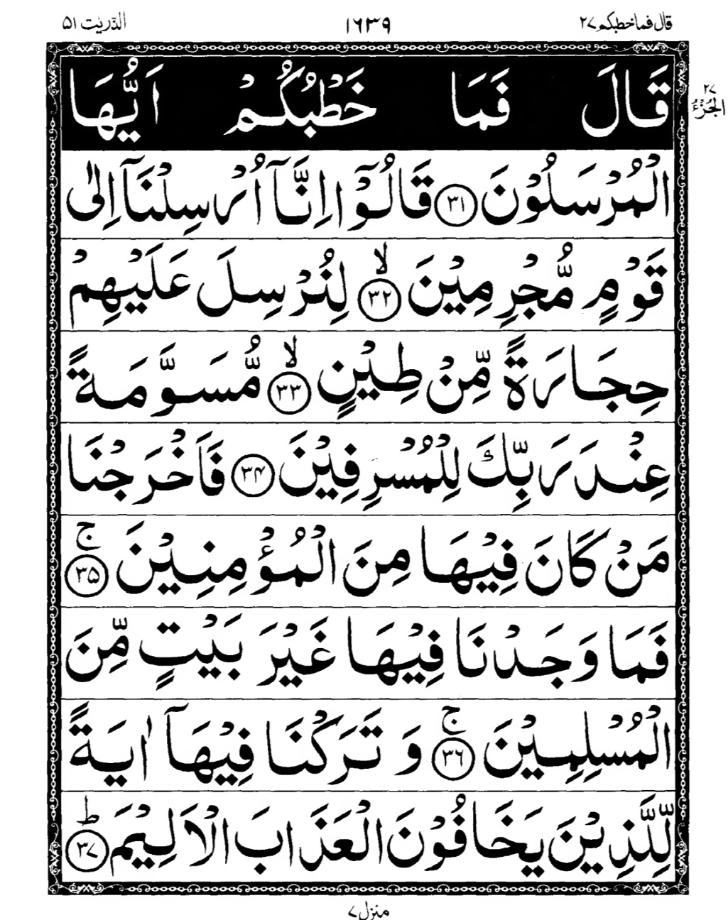 قال فما خطبکم ۲۷ ۱۶۳۹ الذّٰریٰت ۵۱
۲۷ الجزء
قَالَ فَمَا خَطْبُكُمْ اَيُّهَا
الْمُرْسَلُوْنَ ۝۳۱ قَالُوْٓا اِنَّآ اُرْسِلْنَآ اِلٰى
قَوْمٍ مُّجْرِمِيْنَ ۙ۝۳۲ لِنُرْسِلَ عَلَيْهِمْ
حِجَارَةً مِّنْ طِيْنٍ ۙ۝۳۳ مُّسَوَّمَةً
عِنْدَ رَبِّكَ لِلْمُسْرِفِيْنَ ۝۳۴ فَاَخْرَجْنَا
مَنْ كَانَ فِيْهَا مِنَ الْمُؤْمِنِيْنَ ۚ۝۳۵
فَمَا وَجَدْنَا فِيْهَا غَيْرَ بَيْتٍ مِّنَ
الْمُسْلِمِيْنَ ۚ۝۳۶ وَ تَرَكْنَا فِيْهَآ اٰيَةً
لِّلَّذِيْنَ يَخَافُوْنَ الْعَذَابَ الْاَلِيْمَ ؕ۝۳۷
منزل ۷